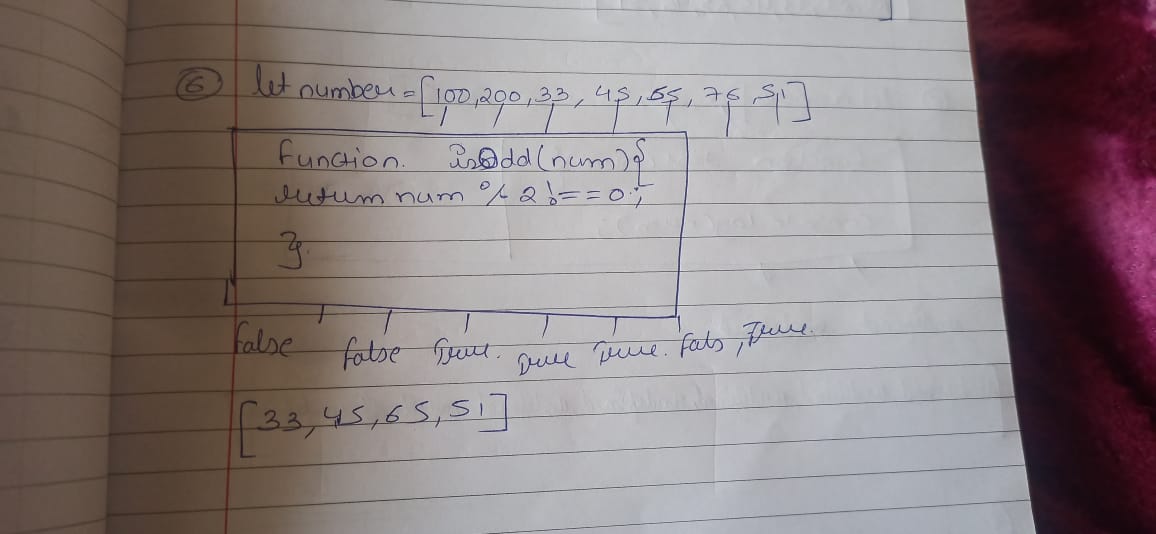 6 let number = [100,200,33, 45,65, 76,51]
function. isOdd(num){
return num % 2 !== 0;
}.
false false True. True True. fals, True.
[33,45,65,51]